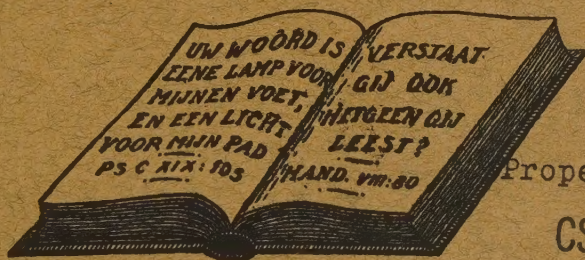 UW WOORD IS
EENE LAMP VOOR
MIJNEN VOET,
EN EEN LICHT
VOOR MIJN PAD
PS C XIX: 105
VERSTAAT
GIJ OOK
HETGEEN GIJ
LEEST?
HAND. VIII:30
Prope
CS